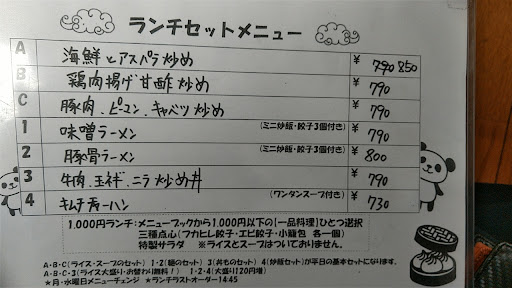 ランチセットメニュー
A 海鮮とアスパラ炒め ¥790 850
B 鶏肉揚げ甘酢炒め ¥790
C 豚肉、ピーマン、キャベツ炒め ¥790
1 味噌ラーメン (ミニ炒飯・餃子3個付き) ¥790
2 豚骨ラーメン (ミニ炒飯・餃子3個付き) ¥800
3 牛肉、玉ネギ、ニラ炒め丼 ¥790
4 キムチチャーハン (ワンタンスープ付き) ¥730
1,000円ランチ:メニューブックから1,000円以下の[一品料理]ひとつ選択
三種点心(フカヒレ餃子・エビ餃子・小籠包 各一個)
特製サラダ ※ライスとスープはついておりません。
A・B・C(ライス・スープのセット) 1・2(麺のセット) 3(丼ものセット) 4(炒飯セット)が平日の基本セットになります。
A・B・C・3(ライス大盛り・お替わり無料!) 1・2・4(大盛り120円増)
★月・水曜日メニューチェンジ ★ランチラストオーダー14:45